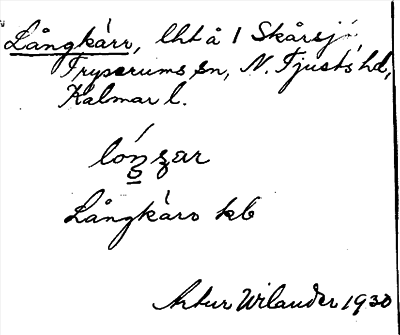 Långkärr, lht å 1 Skårsjö
Fryserums sn, N. Tjusts hd,
Kalmar l.
Långkärr kb
Artur Wilander 1930